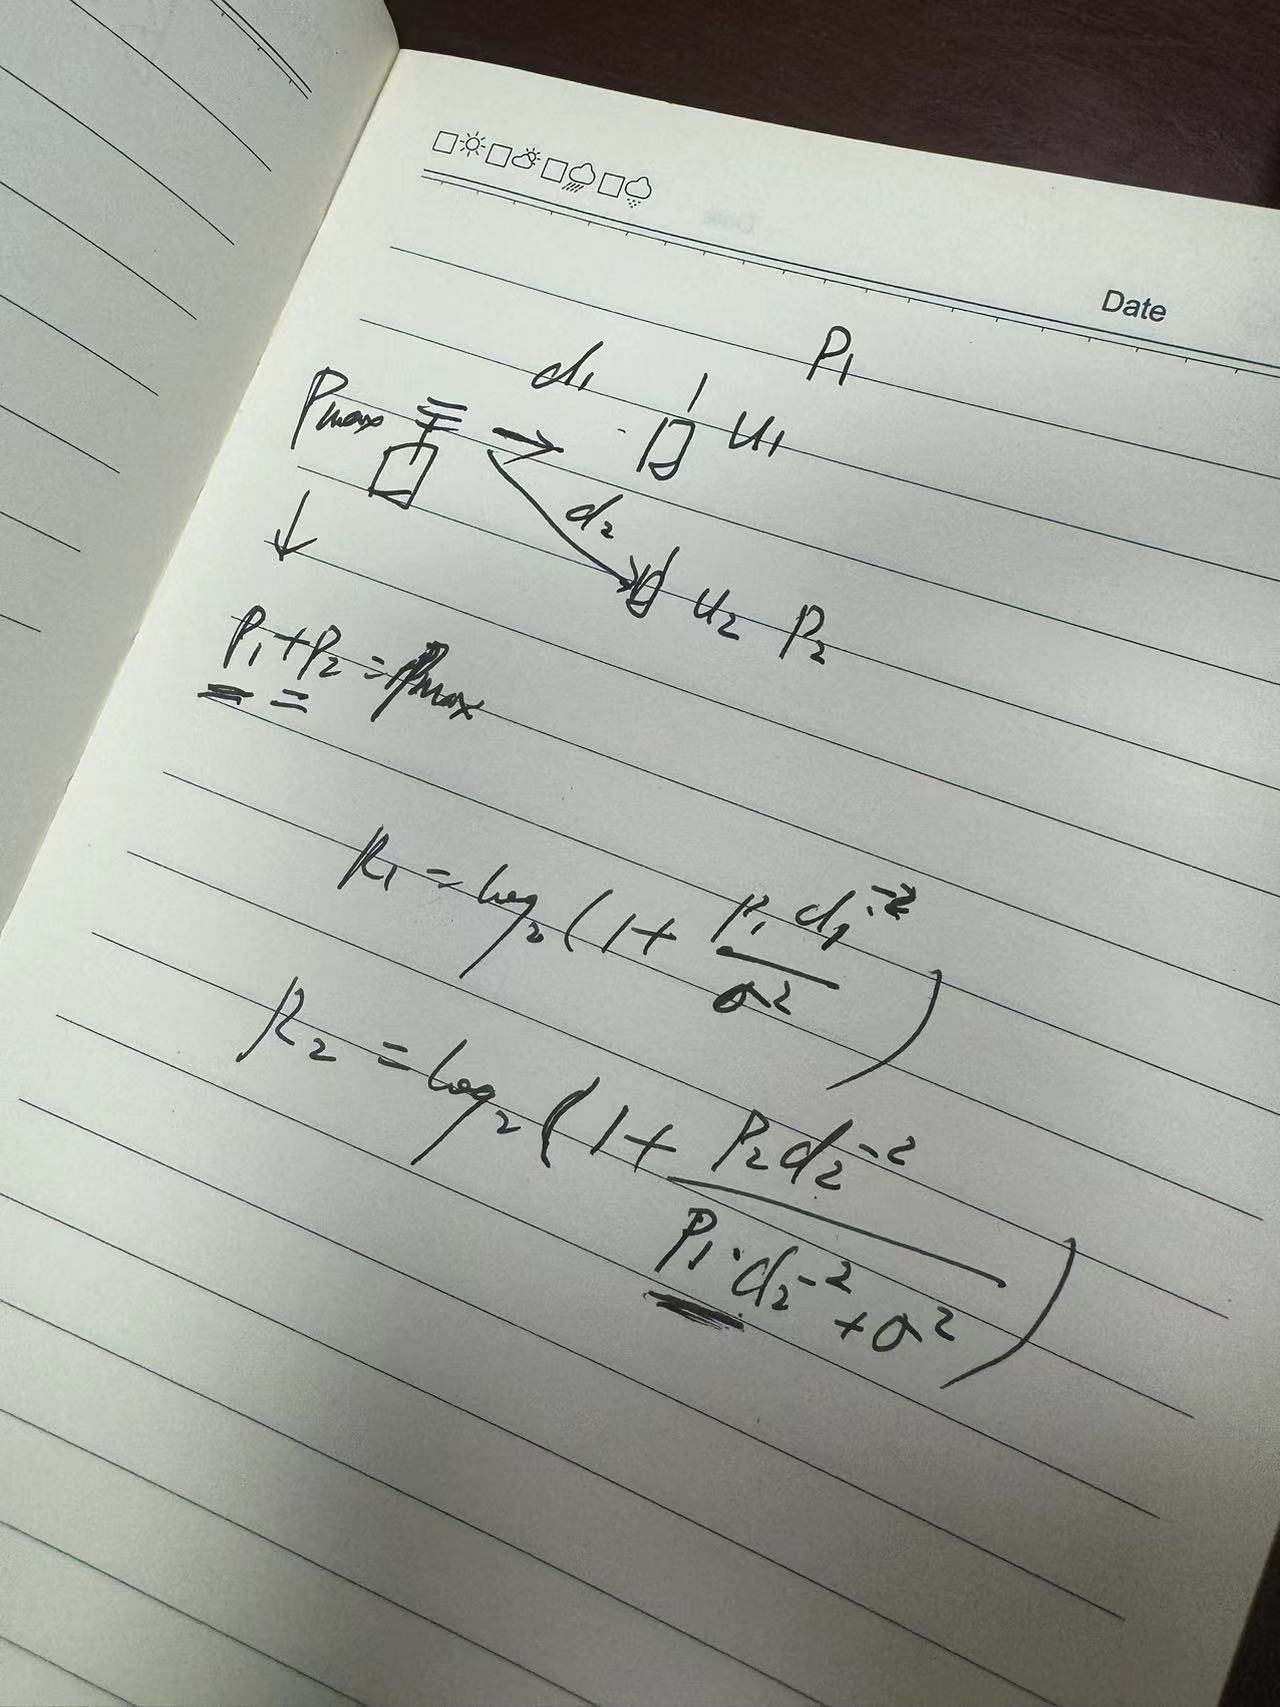 Date
P₁
d₁
Pmax
u₁
d₂
u₂ P₂
P₁+P₂ = Pmax
R₁ = log₂(1+ P₁ d₁⁻² / σ²)
R₂ = log₂(1+ P₂ d₂⁻² / P₁·d₂⁻² + σ²)